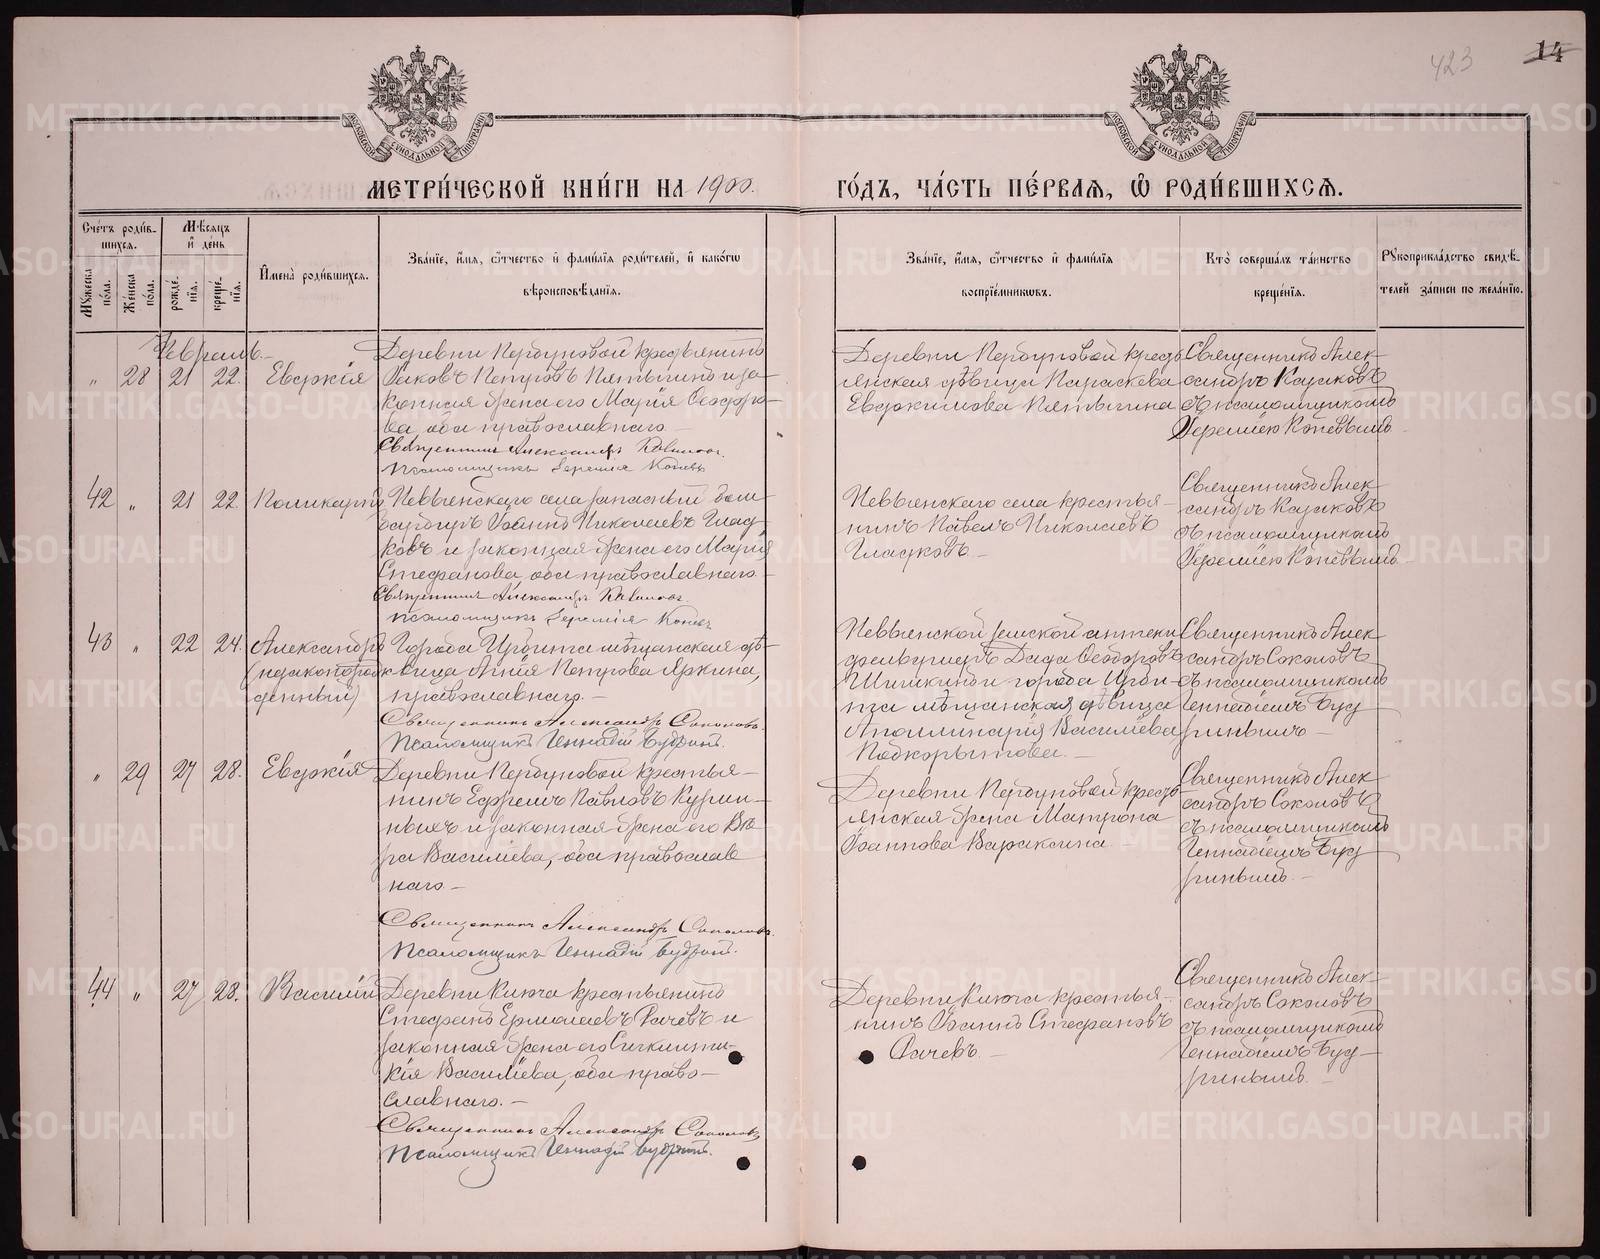 423
14
МЕТРИ́ЧЕСКОЙ КНИ́ГИ НА 1900.
ГО́ДЪ, ЧА́СТЬ ПЕ́РВАЯ, Ѡ҆ РОДИ́ВШИХСЯ.
Сче́тъ роди́в-
шихся.
Мѣ́сяцъ
и҆ де́нь
Мꙋ́жеска по́ла.
Же́нска по́ла.
рожде́-
нїя.
креще́-
нїя.
И҆мена̀ роди́вшихся.
Зва́нїе, и҆́мя, ѻ҆́тчество и҆ фами́лїя роди́телей, и҆ како́гѡ
вѣроисповѣ́данїя.
Зва́нїе, и҆́мя, ѻ҆́тчество и҆ фами́лїя
воспрїе́мникѡвъ.
Кто̀ соверша́лъ та́инство
креще́нїя.
Рꙋкоприкла́дство свидѣ́-
телей за́писи по жела́нїю.
Февраль
„ 28 21 22. Евдокія
Деревни Первуновой крестьянинъ
Іаковъ Петровъ Пятыгинъ и за-
конная жена его Марія Ѳеодоро-
ва, оба православнаго
Священникъ Александръ Казаковъ.
Псаломщикъ Іеремія Коневъ
Деревни Первуновой кресть
янская дѣвица Параскева
Евдокимова Пятыгина
Священникъ Алек-
сандръ Казаковъ
съ псаломщикомъ
Іереміею Коневымъ
42 „ 21 22 Поликарпъ
Невьянскаго села запасный бом-
бардиръ Іоаннъ Николаевъ Глад
ковъ и законная жена его Марія
Стефанова, оба православнаго
Священникъ Александръ Казаковъ.
Псаломщикъ Іеремія Коневъ
Невьянскаго села крестья-
нинъ Павелъ Николаевъ
Гладковъ –
Священникъ Алек
сандръ Казаковъ
съ псаломщикомъ
Іереміею Коневымъ
43 „ 22 24. Александръ
(незаконорож
денный)
Города Ирбита мѣщанская дѣ-
вица Анна Петрова Яркина,
православнаго. –
Священникъ Александръ Соколовъ.
Псаломщикъ Геннадій Будринъ.
Невьянской земской аптеки
фельдшеръ Дада Ѳеодоровъ
Шишкинъ и города Ирби-
та мѣщанская дѣвица
Аполлинарія Васильева
Подкорытова. –
Священникъ Алек
сандръ Соколовъ
съ псаломщикомъ
Геннадіемъ Буд
ринымъ –
„ 29 27 28. Евдокія
Деревни Первуновой крестья-
нинъ Ефремъ Павловъ Кузми-
ныхъ и законная жена его Вѣ
ра Васильева, оба православ
наго –
Священникъ Александръ Соколовъ.
Псаломщикъ Геннадій Будринъ.
Деревни Первуновой кресть
янская жена Матрона
Іоаннова Вараксина
Священникъ Алек
сандръ Соколовъ
съ псаломщикомъ
Геннадіемъ Буд
ринымъ. –
44 „ 27 28. Василій
Деревни Ключа крестьянинъ
Стефанъ Ермолаевъ Рачевъ и
законная жена его Сигклити-
кія Васильева, оба право-
славнаго. –
Священникъ Александръ Соколовъ
Псаломщикъ Геннадій Будринъ.
Деревни Ключа крестья-
нинъ Іоаннъ Стефановъ
Рачевъ. –
Священникъ Алек
сандръ Соколовъ
съ псаломщикомъ
Геннадіемъ Буд-
ринымъ. –
METRIKI.GASO-URAL.RU